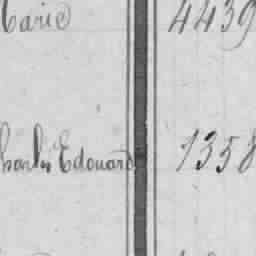 Marie 4439
Charles Edouard 1358